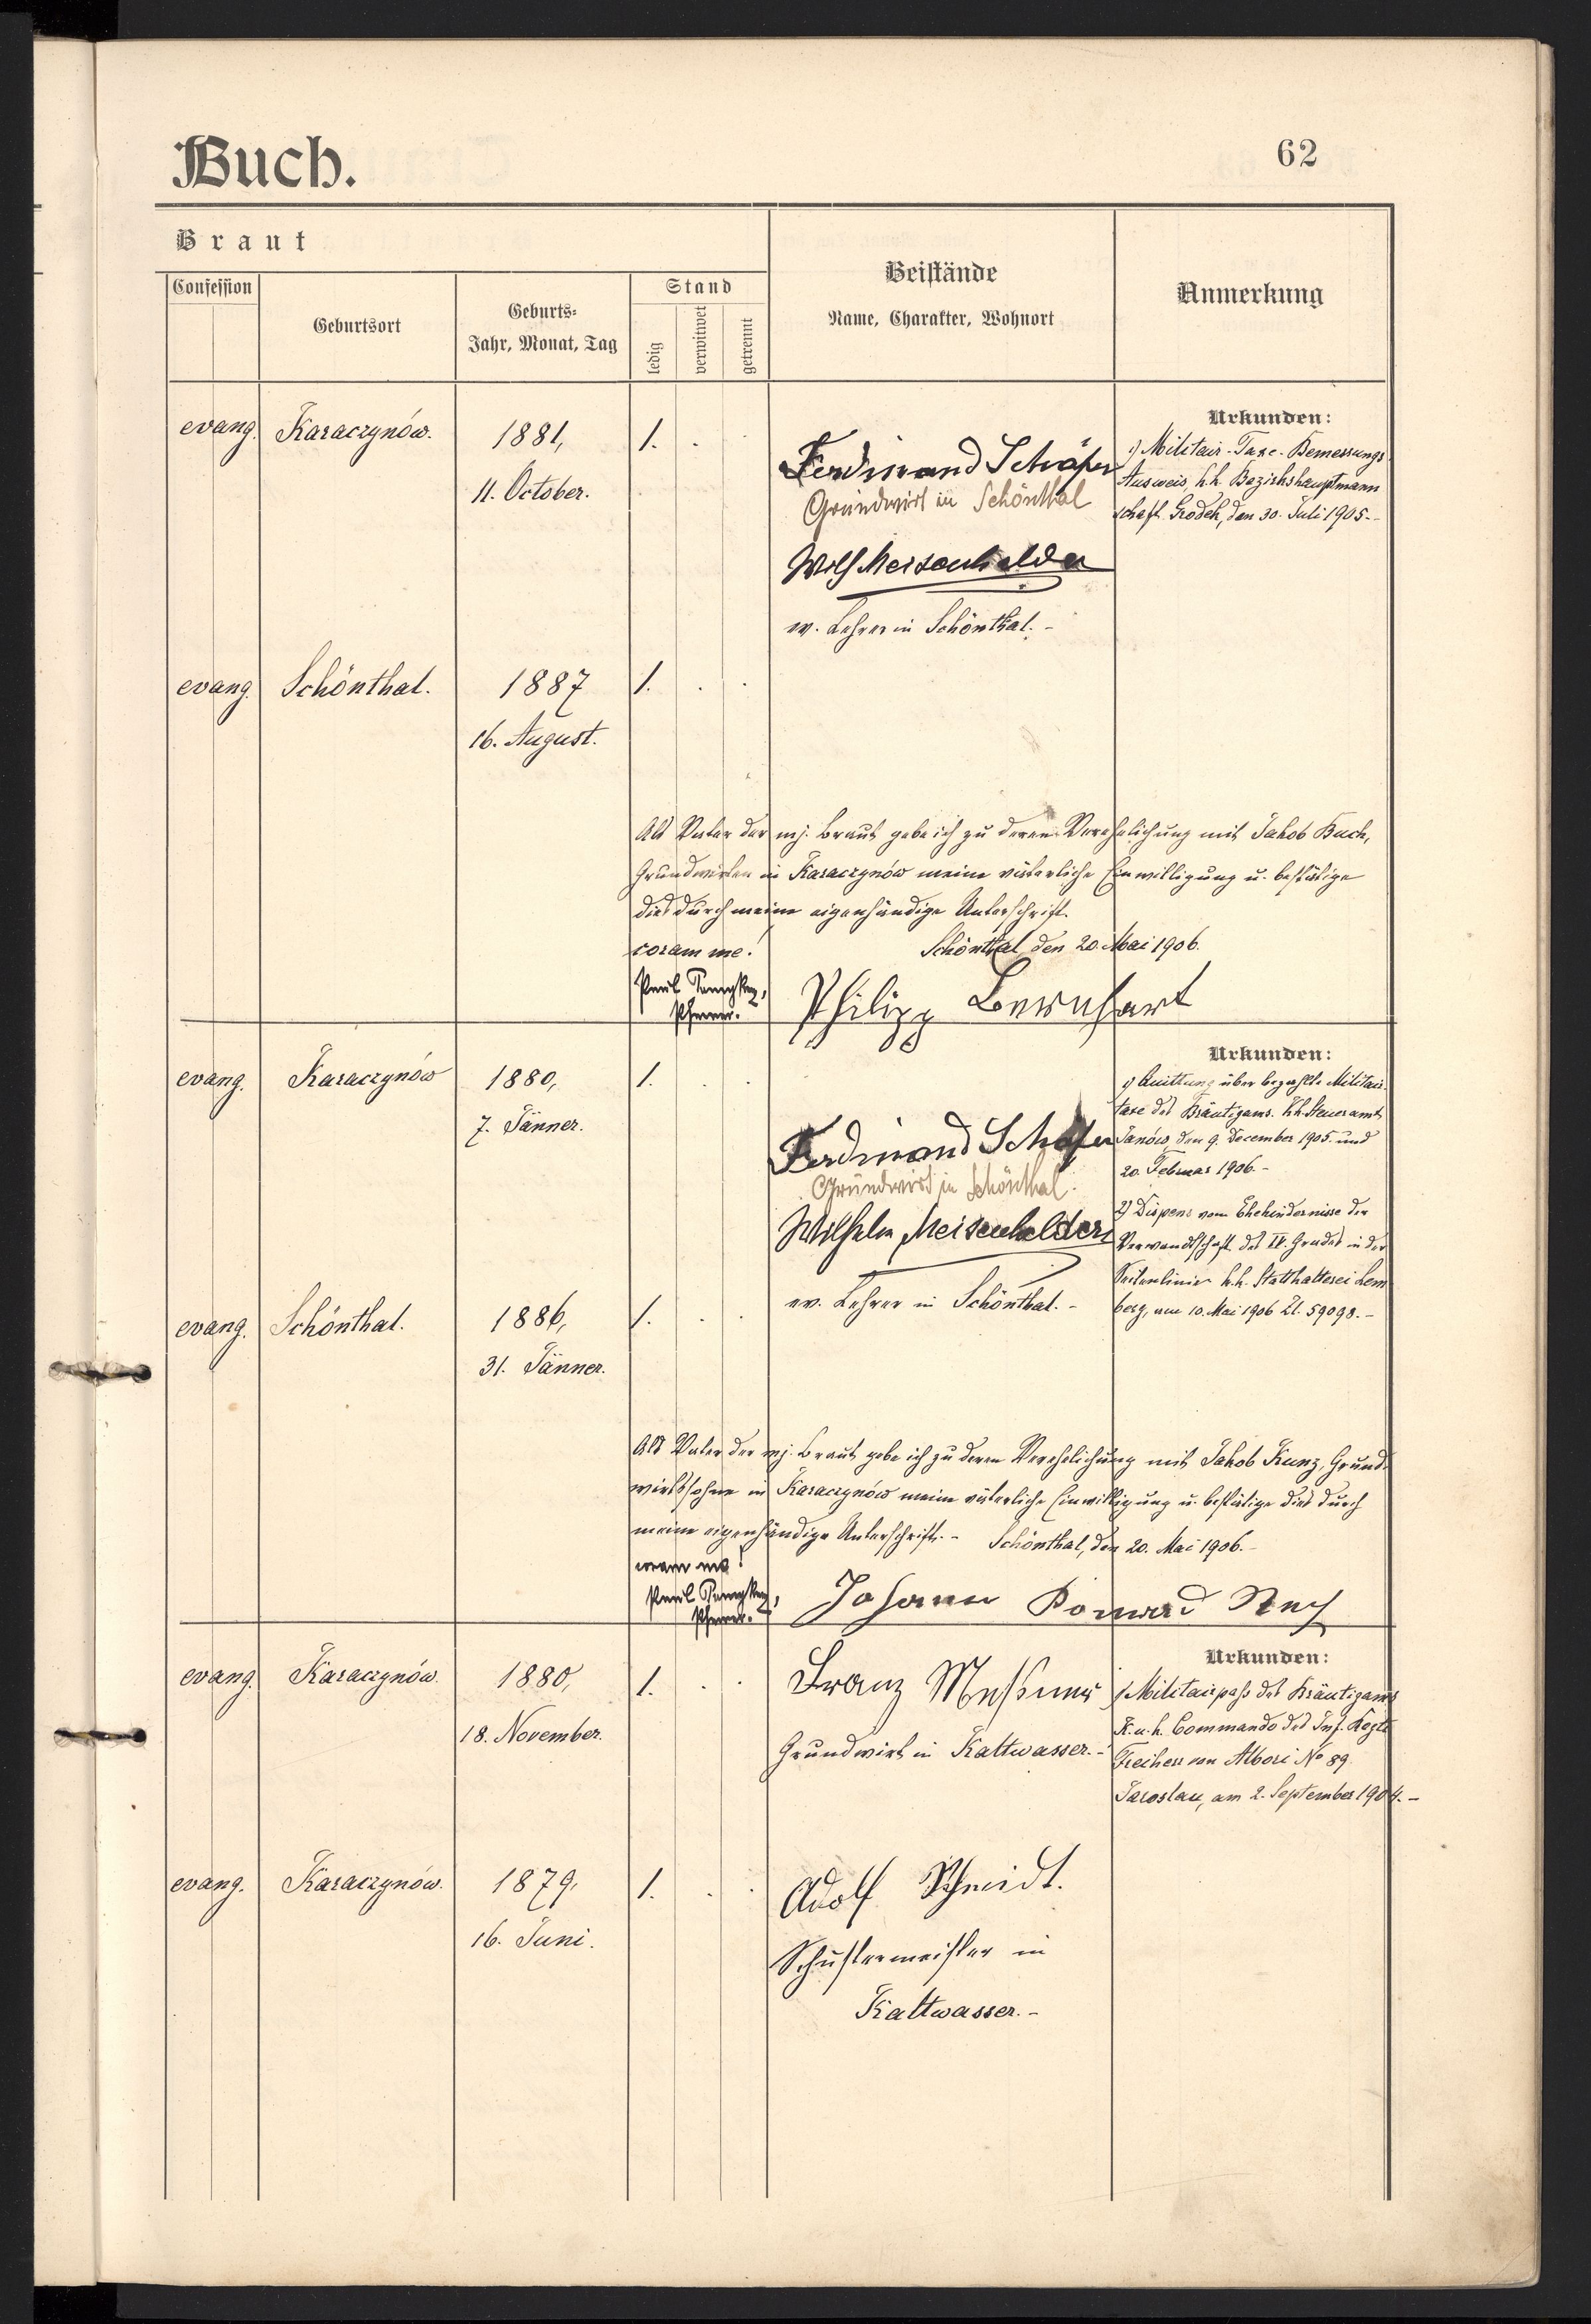 Buch.
62
Braut
Confession
Geburtsort
Geburts-
Jahr, Monat, Tag
Stand
ledig
verwitwet
getrennt
Beistände
Name, Charakter, Wohnort
Anmerkung
evang. Karaczynów. 1881, 1. . .
11. October.
Ferdinand Schäfer
Grundwirt in Schönthal
Wilh Meisenhelder
ev. Lehrer in Schönthal. -
Urkunden:
1) Militair-Taxe-Bemessungs
Ausweis, k.k. Bezirkshauptmann
schaft Grodek, den 30. Juli 1905.-
evang. Schönthal. 1887 1. . .
16. August.
Als Vater der mj. Braut gebe ich zu deren Verehelichung mit Jakob Buch,
Grundwirten in Karaczynów meine väterliche Einwilligung u. bestätige
dies durch meine eigenhändige Unterschrift.
coram me! Schönthal, den 20. Mai 1906.
Paul
Pfarrer.
Philipp Bernhart
evang. Karaczynów 1880, 1. . .
7. Jänner.
Ferdinand Schäfer
Grundwirt in Schönthal.
Wilhelm Meisenhelder
ev. Lehrer in Schönthal. -
Urkunden:
1) Quittung über bezahlte Militair-
taxe des Bräutigams. k.k. Steueramt
Janów, den 9. December 1905. und
20. Februar 1906. -
2) Dispens vom Ehehindernisse der
Verwandtschaft des IV. Grades in der
Seitenlinie k.k. Statthalterei Lem
berg, am 10. Mai 1906 Zl. 59098. -
evang. Schönthal. 1886, 1. . .
31. Jänner.
Als Vater der mj. Braut gebe ich zu deren Verehelichung mit Jakob Kunz, Grund-
wirtssohne in Karaczynów meine väterliche Einwilligung u. bestätige dies durch
meine eigenhändige Unterschrift. - Schönthal, den 20. Mai 1906. -
coram me!
Paul
Pfarrer.
Johann Konrad
evang. Karaczynów. 1880, 1. . .
18. November.
Franz
Grundwirt in Kaltwasser. -
Urkunden:
1) Militairpaß des Bräutigams
K.u.k. Commando des Inf. Regts
Freiherr von Albori No 89.
Jaroslau, am 2. September 1904. -
evang. Karaczynów. 1879, 1. . .
16. Juni.
Adolf Schmidt.
Schustermeister in
Kaltwasser. -